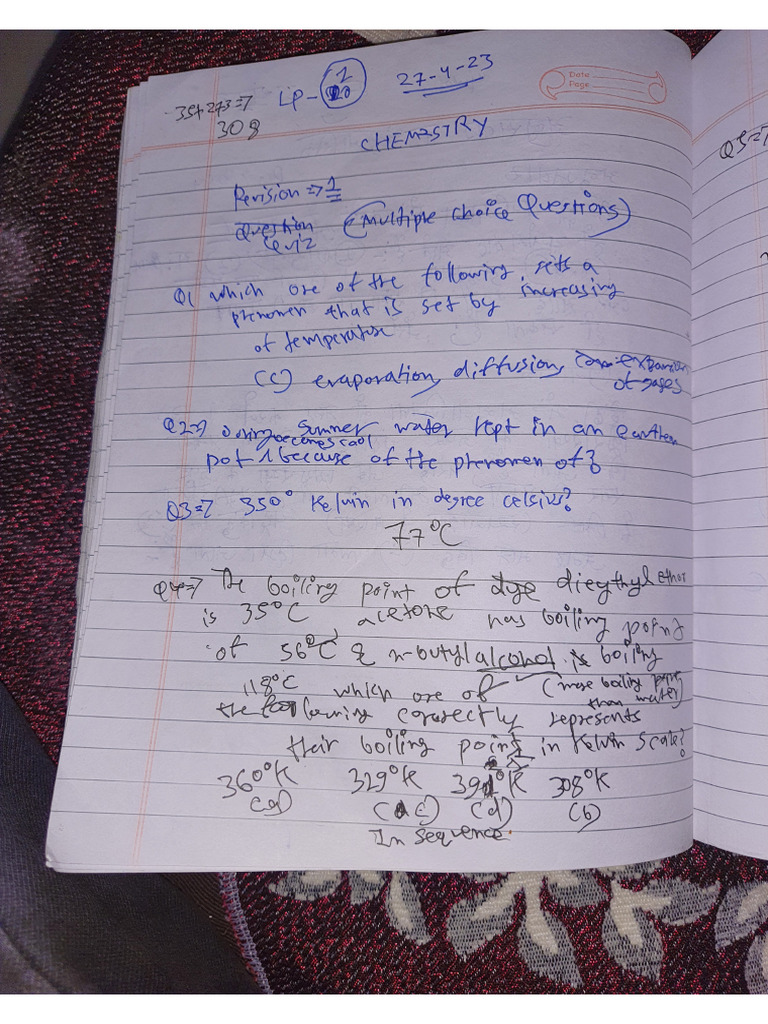 35+273=7
308
LP-1
20
27-4-23
Date
Page
CHEMISTRY
Revision => 1
Question
Quiz (Multiple Choice Questions)
Q1 which one of the following sets a
phenomen that is set by increasing
of temperature
(c) evaporation, diffusion, expansion
of gases
Q2=7 During summer water kept in an earthen
pot becomes cool because of the phenomen of?
Q3=7 350° Kelvin in degree celsius?
77°C
Q4=7 The boiling point of dieythyl ether
is 35°C, acetone has boiling point
of 56°C & n-butyl alcohol is boiling
118°C which one of (more boiling point
than water)
the following correctly represents
their boiling point in Kelvin Scale?
360°K 329°K 391°K 308°K
(a) (c) (d) (b)
In sequence.
Q5=7